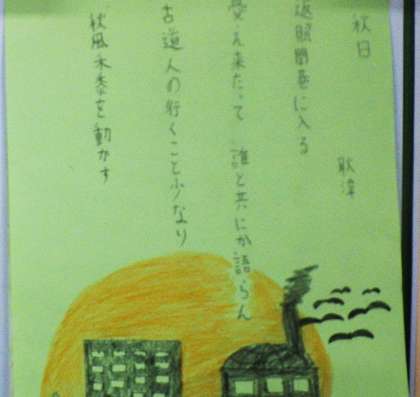 秋日
耿湋
返照閭巷に入る
憂え来たって 誰と共にか語らん
古道人の行くこと少なり
秋風禾黍を動かす